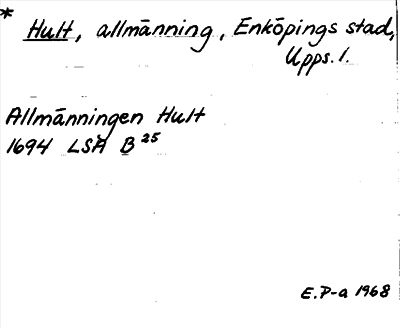 * Hult, allmänning, Enköpings stad,
Upps. l.
Allmänningen Hult
1694 LSA B 25
E.P-a 1968